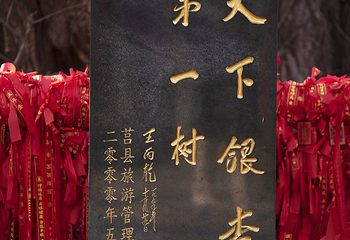 天下银杏
第一树
王丙乾
莒县旅游管理
二零零零年五